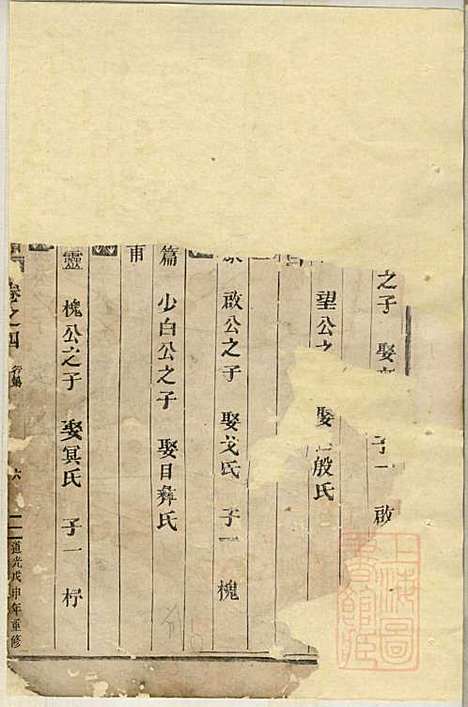 之子 娶 子一 啟
望公之 娶 殷氏
啟公之子 娶戈氏 子一 槐
篇 少白公之子 娶目彝氏
甫
靈 槐公之子 娶冥氏 子一 杼
卷之四 六
道光戊申年重修
上海圖書館藏